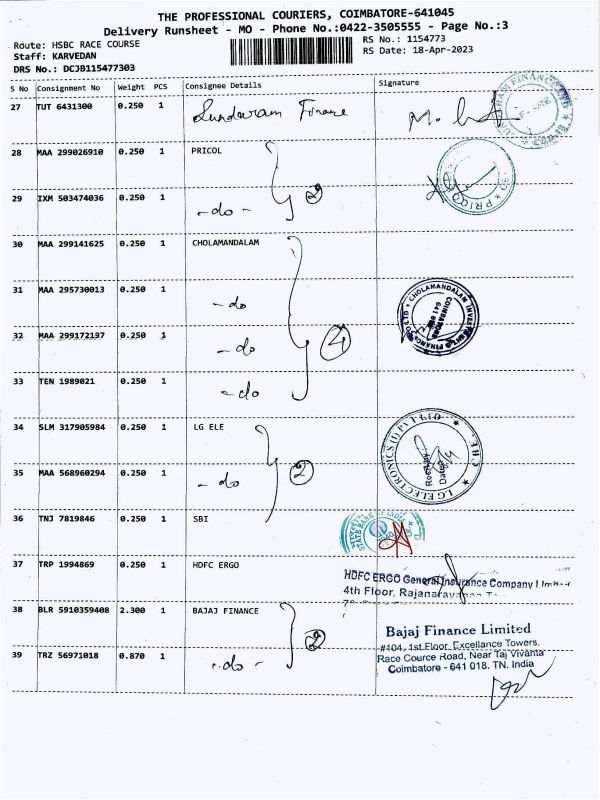 THE PROFESSIONAL COURIERS, COIMBATORE-641045
Delivery Runsheet - MO - Phone No.:0422-3505555 - Page No.:3
Route: HSBC RACE COURSE
RS No.: 1154773
Staff: KARVEDAN
RS Date: 18-Apr-2023
DRS No.: DCJB115477303
S No Consignment No Weight PCS Consignee Details Signature
27 TUT 6431300 0.250 1 Sundaram Finance
28 MAA 299026910 0.250 1 PRICOL
29 IXM 503474036 0.250 1 -do- 2
PRICO
30 MAA 299141625 0.250 1 CHOLAMANDALAM
31 MAA 295730013 0.250 1 -do
CHOLAMANDALAM
COIMBATORE
32 MAA 299172197 0.250 1 -do 4
33 TEN 1989021 0.250 1 -do
34 SLM 317905984 0.250 1 LG ELE
LG ELECTRONICS (I) PVT LTD CBE
35 MAA 568960294 0.250 1 -do 2
36 TNJ 7819846 0.250 1 SBI
STATE BANK OF INDIA
37 TRP 1994869 0.250 1 HDFC ERGO
HDFC ERGO General Insurance Company Limited
4th Floor, Rajanarayanan
38 BLR 5910359408 2.300 1 BAJAJ FINANCE 2
Bajaj Finance Limited
#104, 1st Floor, Excellance Towers,
39 TRZ 56971018 0.870 1 -do-
Race Cource Road, Near Taj Vivanta
Coimbatore - 641 018. TN. India